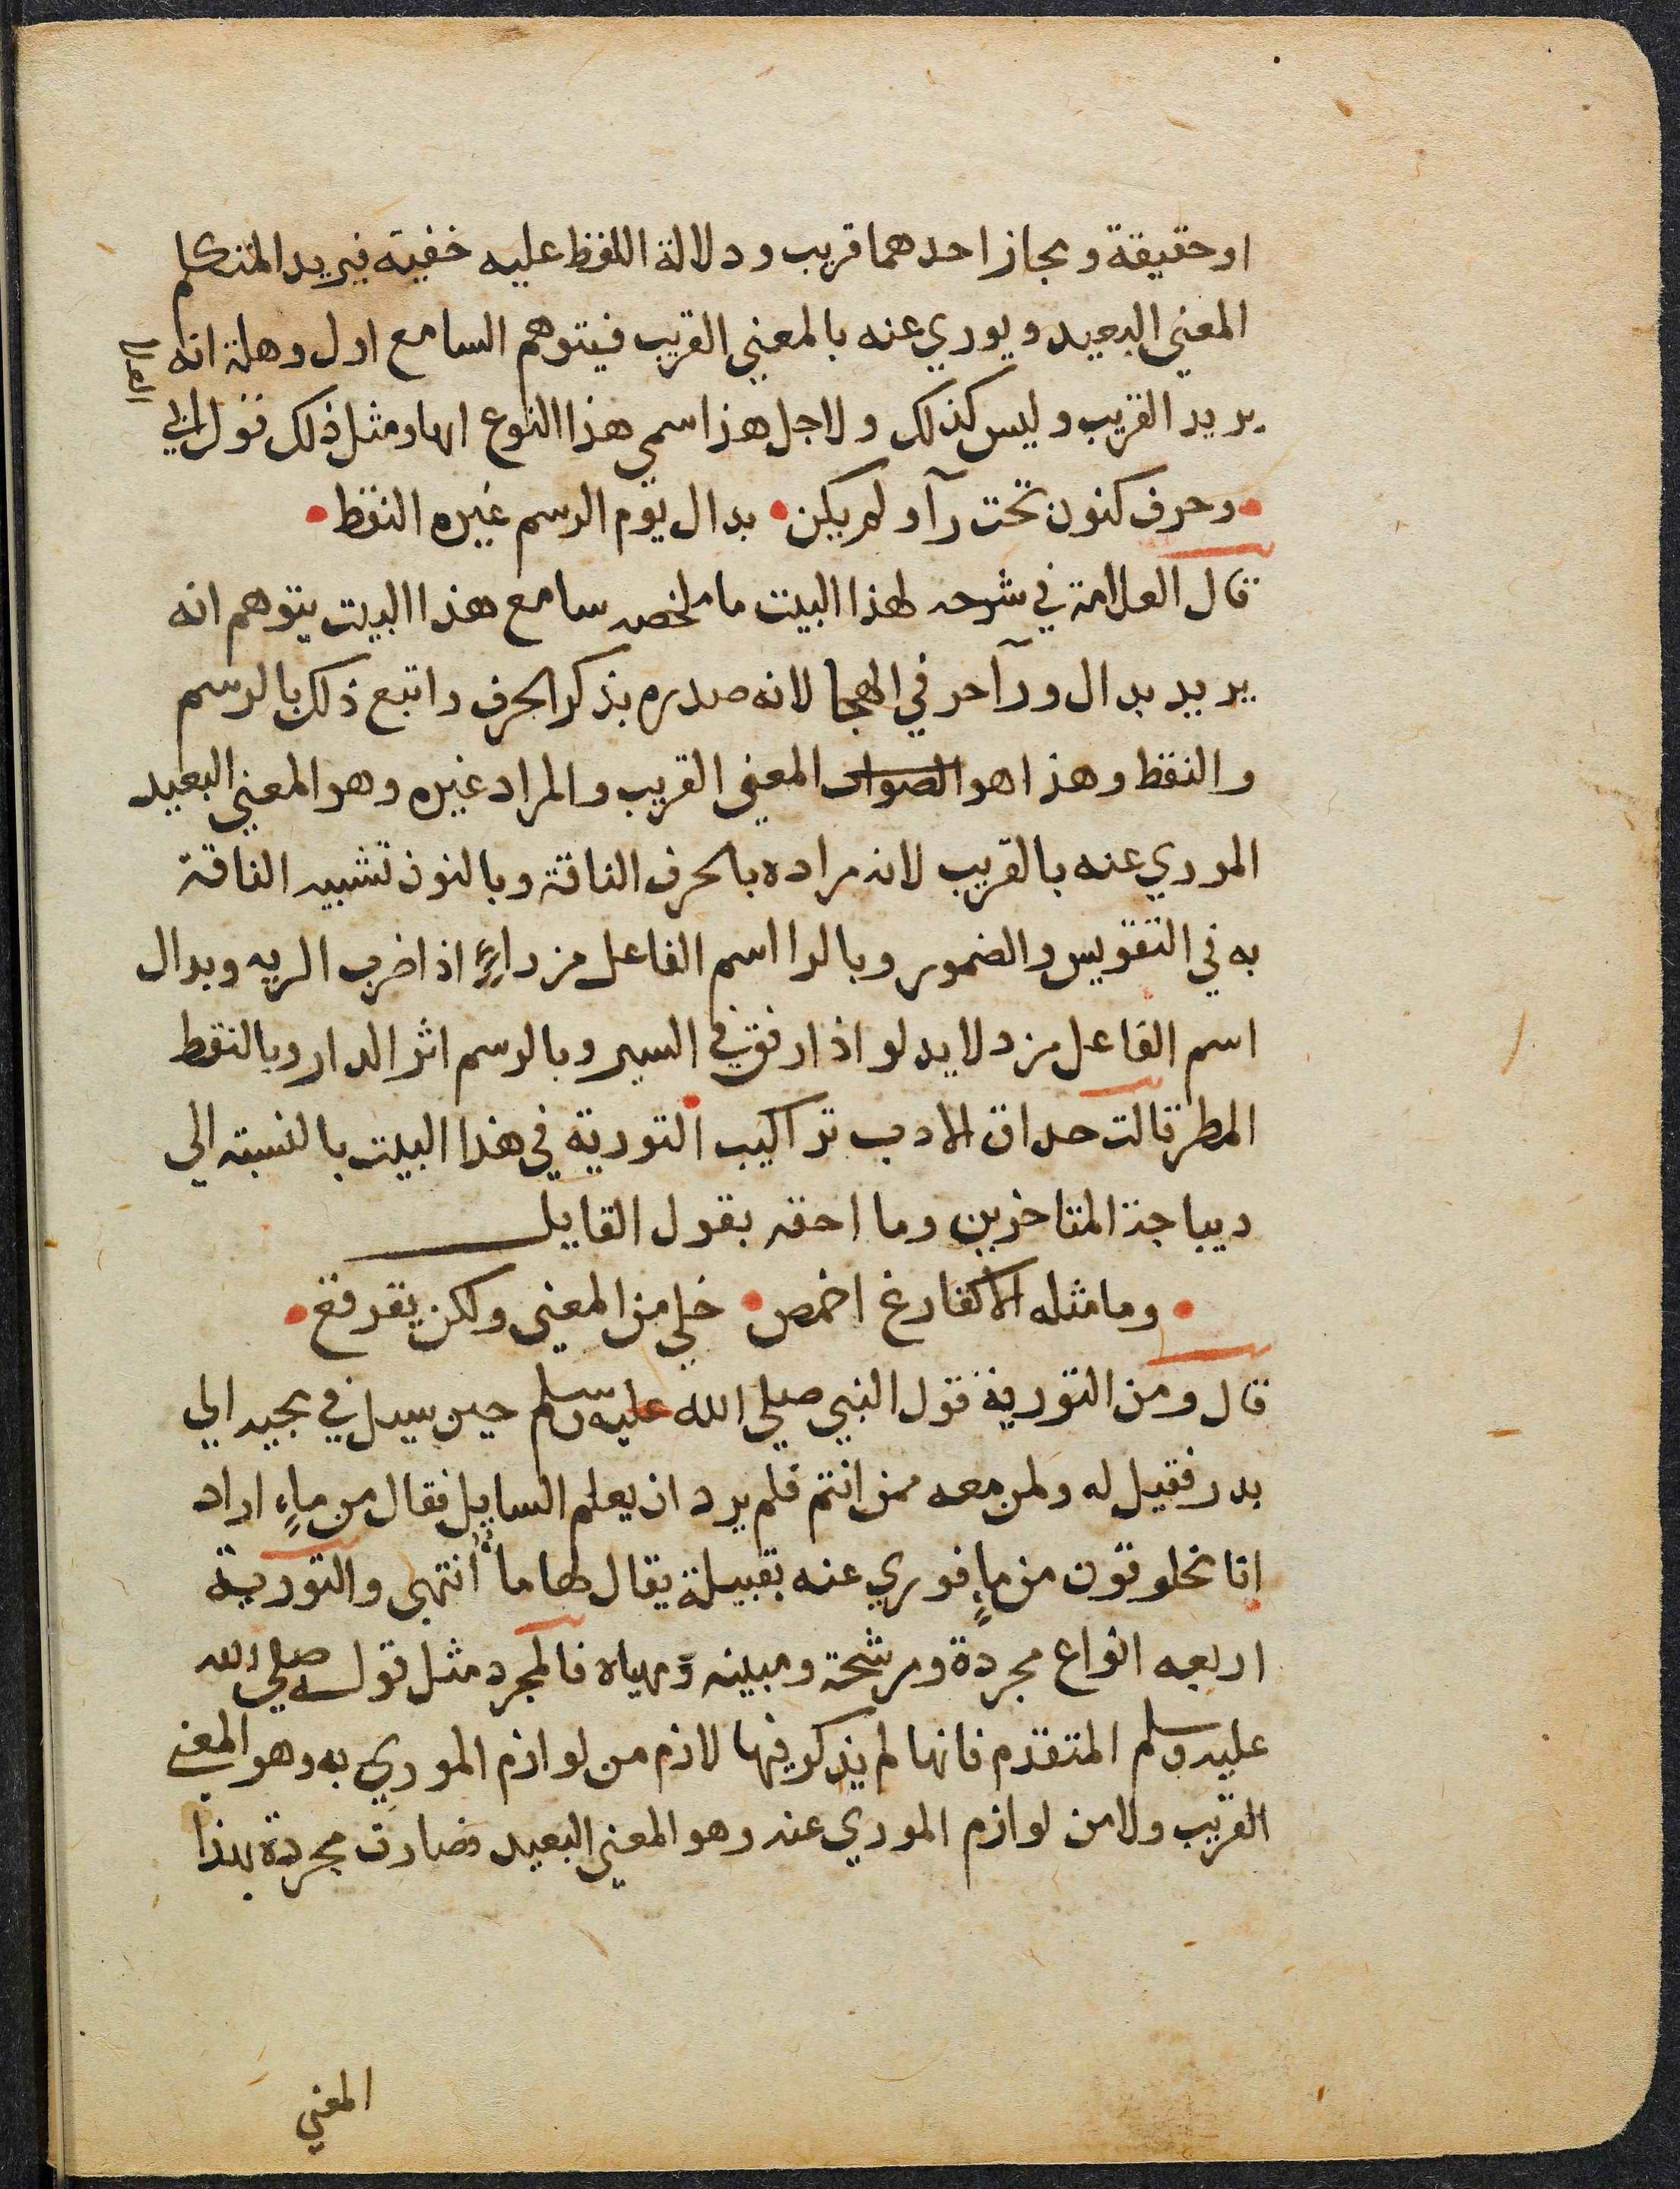 او حقيقة ومجاز احدهما قريب ودلالة اللفظ عليه خفيه فيريد المتكلم
المعني البعيد ويوري عنه بالمعني القريب فيتوهم السامع اول وهلة انه
يريد القريب وليس كذلك ولاجل هذا سمي هذا النوع ايهاو مثل ذلك قول ابي
العلا
وحرف كنون تحت رآ ولم يكن • بدال يوم الرسم غيره النقط •
قال العلامة في شرحه لهذا البيت ما ملخصه سامع هذا البيت يتوهم انه
يريد بدال ورآ حر في الهجا لانه صدره بذكر الحرف واتبع ذلك بالرسم
والنقط وهذا هو المعني القريب والمراد غيره وهو المعني البعيد
الموري عنه بالقريب لانه مراده بالحرف الناقة وبالنون تشبيه الناقة
به في التقويس والضمور وبالرا اسم الفاعل من راءٍ اذا ضرب الريه وبدال
اسم الفاعل من دلا يدلو اذا رفق في السير وبالرسم اثر الدار وبالنقط
المطر قالت حداق الادب تراكيب التورية في هذا البيت بالنسبة الي
ديباجة المتاخرين وما احقه بقول القايل
• وما مثله الا كفارغ اخمص • خلي من المعني ولكن يقرقع •
قال ومن التورية قول النبي صلي الله عليه وسلم حين سيل في مجيه الي
بدر فقيل له ولمن معه ممن انتم فلم يرد ان يعلم السايل فقال من ماءٍ اراد
انا مخلوقون من ماءٍ فوري عنه بقبيلة يقال لها ماءٌ انتهى والتورية
اربعه انواع مجردة ومرشحة ومبينه ومهياه فالمجرد مثل قوله صلي الله
عليه وسلم المتقدم فانها لم يذكر فيها لازم من لوازم الموري به وهو المعني
القريب ولا من لوازم الموري عنه وهو المعني البعيد فصارت مجردة بهذا
المعني